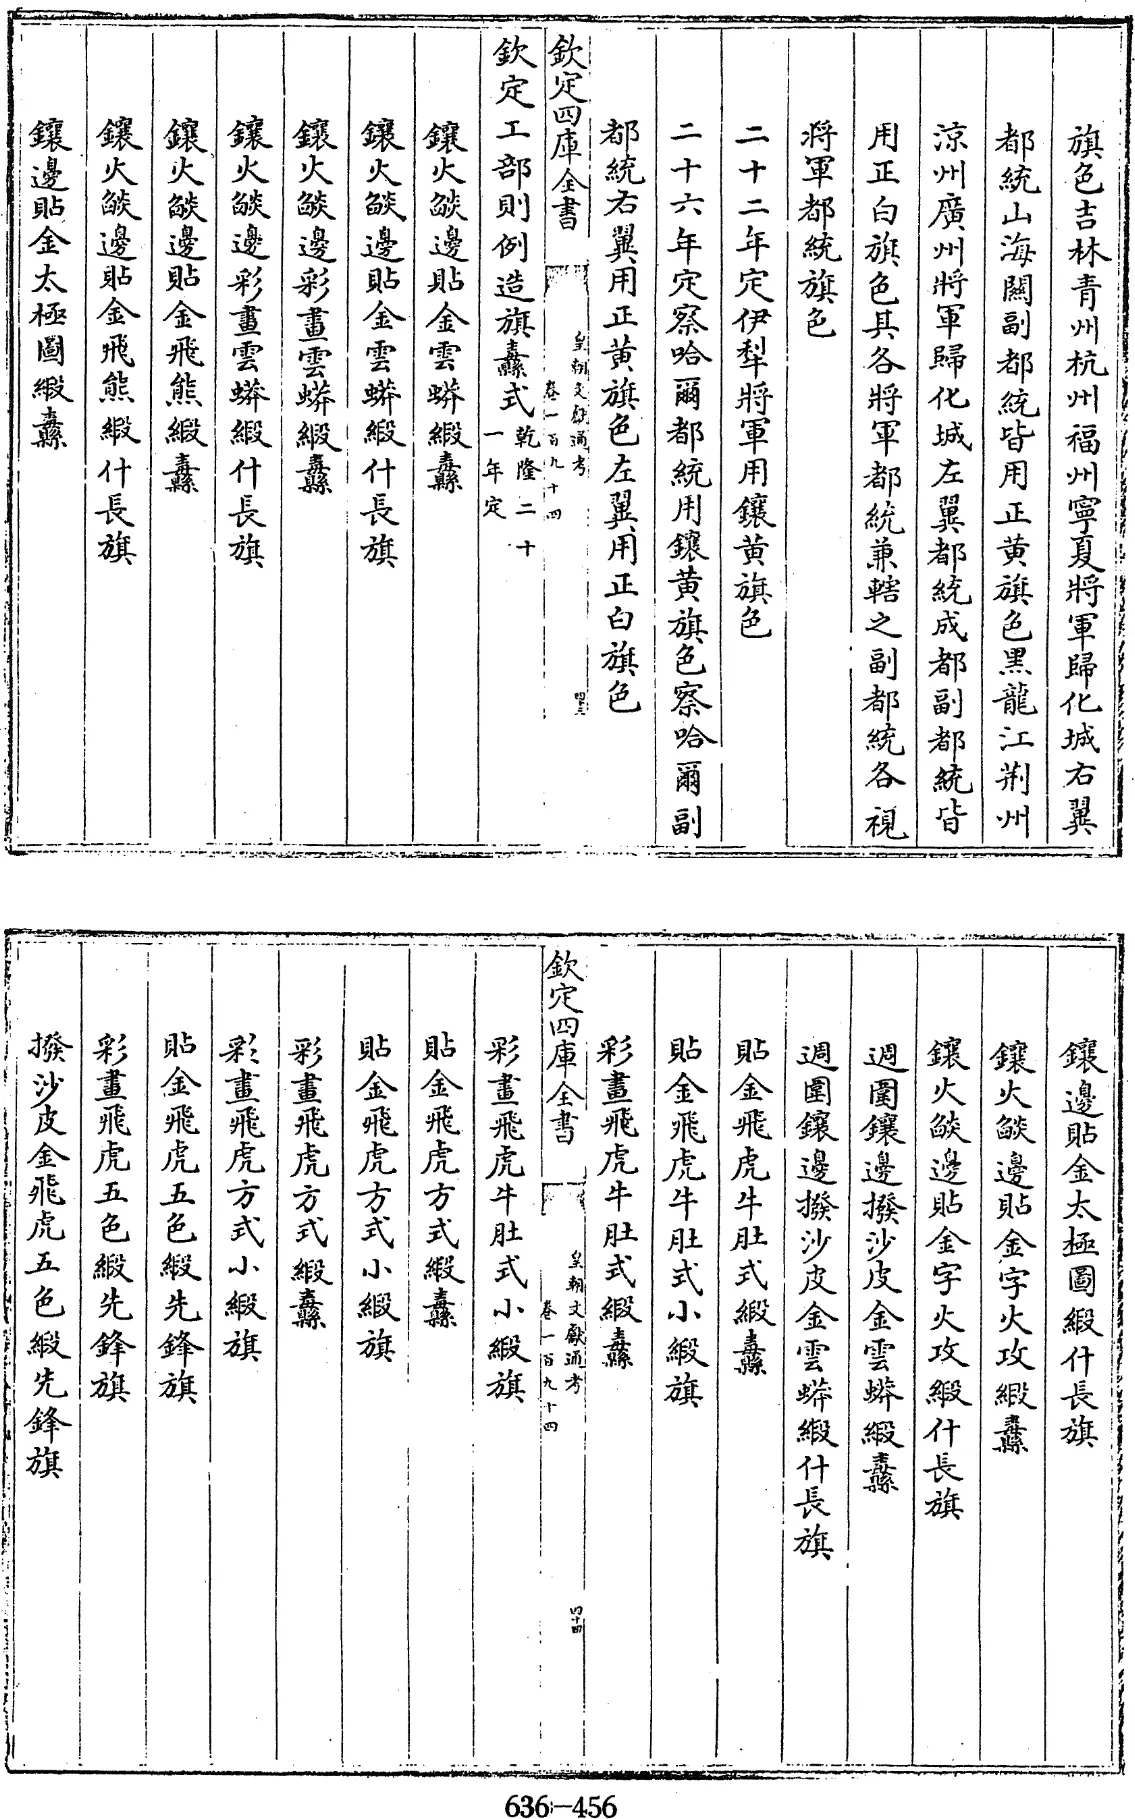 旗色吉林青州杭州福州寧夏將軍歸化城右翼
都統山海關副都統皆用正黄旗色黑龍江荆州
涼州廣州將軍歸化城左翼都統成都副都統皆
用正白旗色其各將軍都統兼轄之副都統各視
將軍都統旗色
二十二年定伊犁將軍用鑲黄旗色
二十六年定察哈爾都統用鑲黄旗色察哈爾副
都統右翼用正黄旗色左翼用正白旗色
欽定四庫全書
皇朝文獻通考
卷一百九十四
四三
欽定工部則例造旗纛式乾隆二十一年定
鑲火燄邊貼金雲蟒緞纛
鑲火燄邊貼金雲蟒緞什長旗
鑲火燄邊彩畫雲蟒緞纛
鑲火燄邊彩畫雲蟒緞什長旗
鑲火燄邊貼金飛熊緞纛
鑲火燄邊貼金飛熊緞什長旗
鑲邊貼金太極圖緞纛
鑲邊貼金太極圖緞什長旗
鑲火燄邊貼金字火攻緞纛
鑲火燄邊貼金字火攻緞什長旗
週圍鑲邊撥沙皮金雲蟒緞纛
週圍鑲邊撥沙皮金雲蟒緞什長旗
貼金飛虎牛肚式緞纛
貼金飛虎牛肚式小緞旗
彩畫飛虎牛肚式緞纛
欽定四庫全書
皇朝文獻通考
卷一百九十四
四十四
彩畫飛虎牛肚式小緞旗
貼金飛虎方式緞纛
貼金飛虎方式小緞旗
彩畫飛虎方式緞纛
彩畫飛虎方式小緞旗
貼金飛虎五色緞先鋒旗
彩畫飛虎五色緞先鋒旗
撥沙皮金飛虎五色緞先鋒旗
636-456